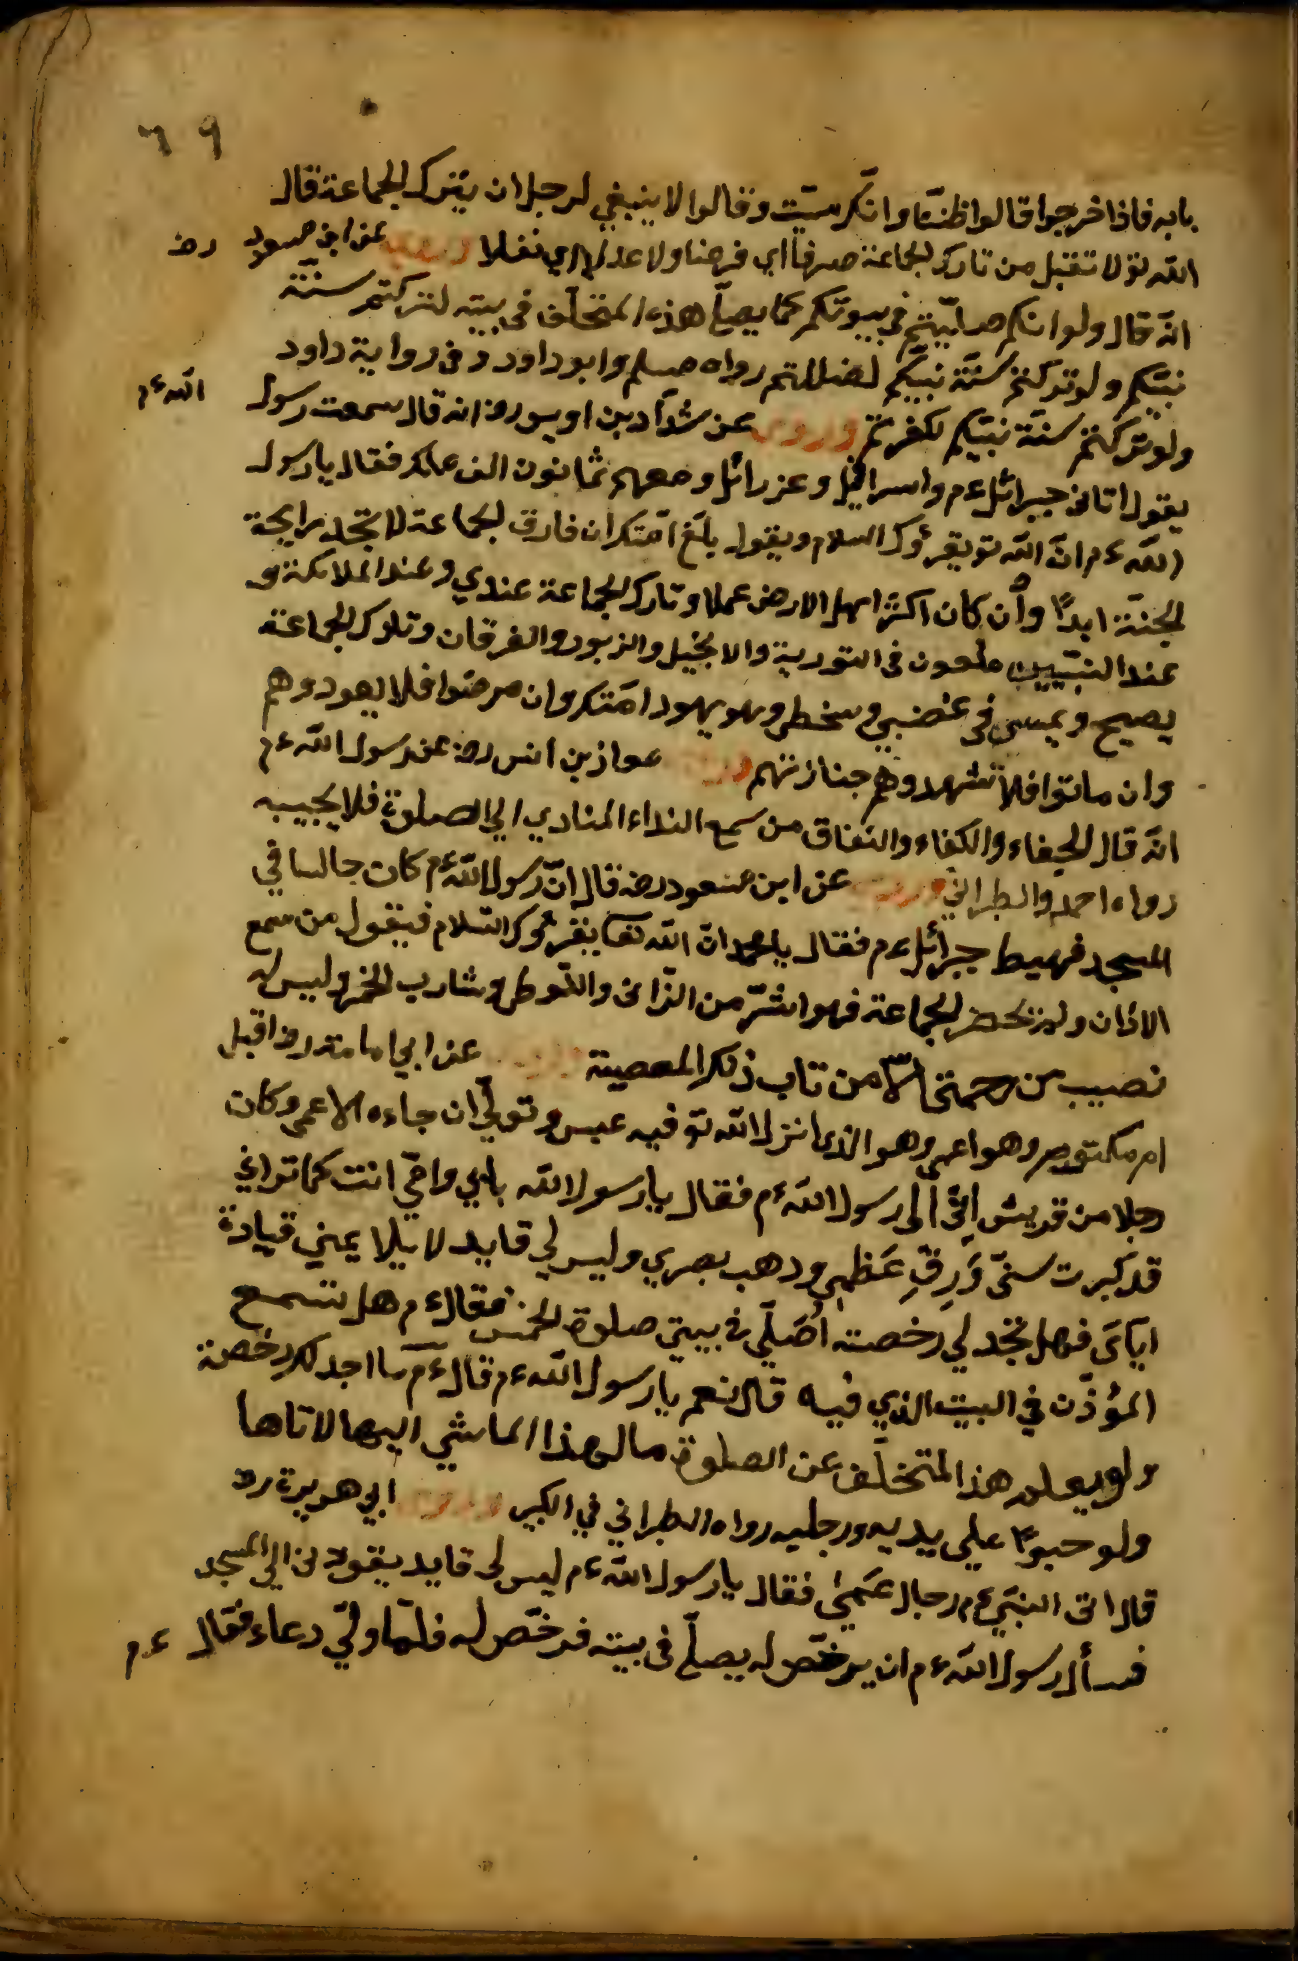 ٦٩
بابه فاذا خرجوا قالوا ظننّا وانّك ميّت وقالوا لا ينبغي لرجل ان يترك الجماعة قال
الله تو لا تقبل من تارك الجماعة صرفا اي فرضا ولا عدلا اي نفلا وروي عن ابن مسعود رض
انه قال ولو انكم صلّيتم في بيوتكم كما يصلّي هذه المتخلّف في بيته لتركتم سنّة
نبيّكم ولو تركتم سنّة نبيّكم لضللتم رواه مسلم وابو داود وفي رواية داود
ولو تركتم سنّة نبيّكم لكفرتم وروي عن شدّاد بن اويس رض انه قال سمعت رسول الله ءم
يقول اتاني جبرائل ءم واسرافيل وعزرائل ومعهم ثمانون الف ملك فقال يا رسول
الله ءم انّ الله تو يقرؤك السلام ويقول بلّغ امّتك ان فارق الجماعة لا تجد رايحة
الجنّة ابدًا وأن كان اكثر اهل الارض عملا وتارك الجماعة عندي وعند الملائكة و
عند النبيّين ملعون في التورية والانجيل والزبور والفرقان وتارك الجماعة
يصبح ويمسي في غضبي وسخطي وهو يهود امّتك وان مرضوا فلا يعودوهم
وان ماتوا فلا تشهدوهم جنازتهم وروي معاذ بن انس رض عن رسول الله ءم
انّه قال الجفاء والكفاء والنفاق من سمع النداء المنادي الى الصلوة فلا يجيبه
رواه احمد والطبراني وروي عن ابن مسعود رض قال انّ رسول الله ءم كان جالسا في
المسجد فهبط جبرائل ءم فقال يا محمد انّ الله تعا يقرءوك السّلام فيقول من سمع
الاذان ولم يحضر الجماعة فهو اشرّ من الزّاني واللّوطي وشارب الخمر وليس له
نصيب من رحمتي الّا من تاب ذلك المعصية وروي عن ابي امامة رض اقبل
ام مكتوم وهو اعمى وهو الذي انزل الله تو فيه عبس وتولّى ان جاءه الاعمى وكان
رجلا من قريش اتى الى رسول الله ءم فقال يا رسول الله بابي وامّي انت كما تراني
قد كبرت سنّي وَرقّ عَظمي وذهب بصري وليس لي قايد لا يلايمني قيادة
ايّاي فهل تجد لي رخصة اُصَلّي في بيتي صلوة الخمس فقال ءم هل تسمع
المؤذّن في البيت الذي فيه قال نعم يا رسول الله ءم قال ءم ما اجد لك رخصة
ولو يعلم هذا المتخلّف عن الصلوة ما لهذا الماشي اليها لاتاها
ولو حبوًا على يديه ورجليه رواه الطبراني في الكبير وروي ابي هريرة رض
قال اتى النبيّ ءم رجال عَمىٰ فقال يا رسول الله ءم ليس لي قايد يقودني الى المسجد
فسأل رسول الله ءم ان يرخّص له يصلّي في بيته فرخّص له فلمّا ولّي دعاه فقال ءم